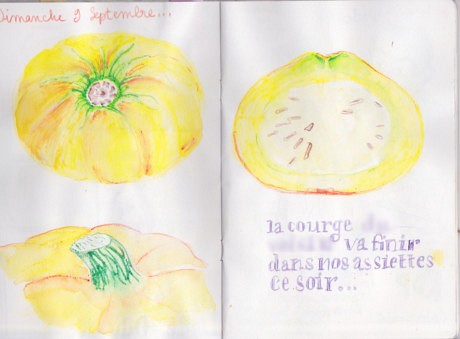 Dimanche 9 Septembre...
la courge
va finir
dans nos assiettes
ce soir...